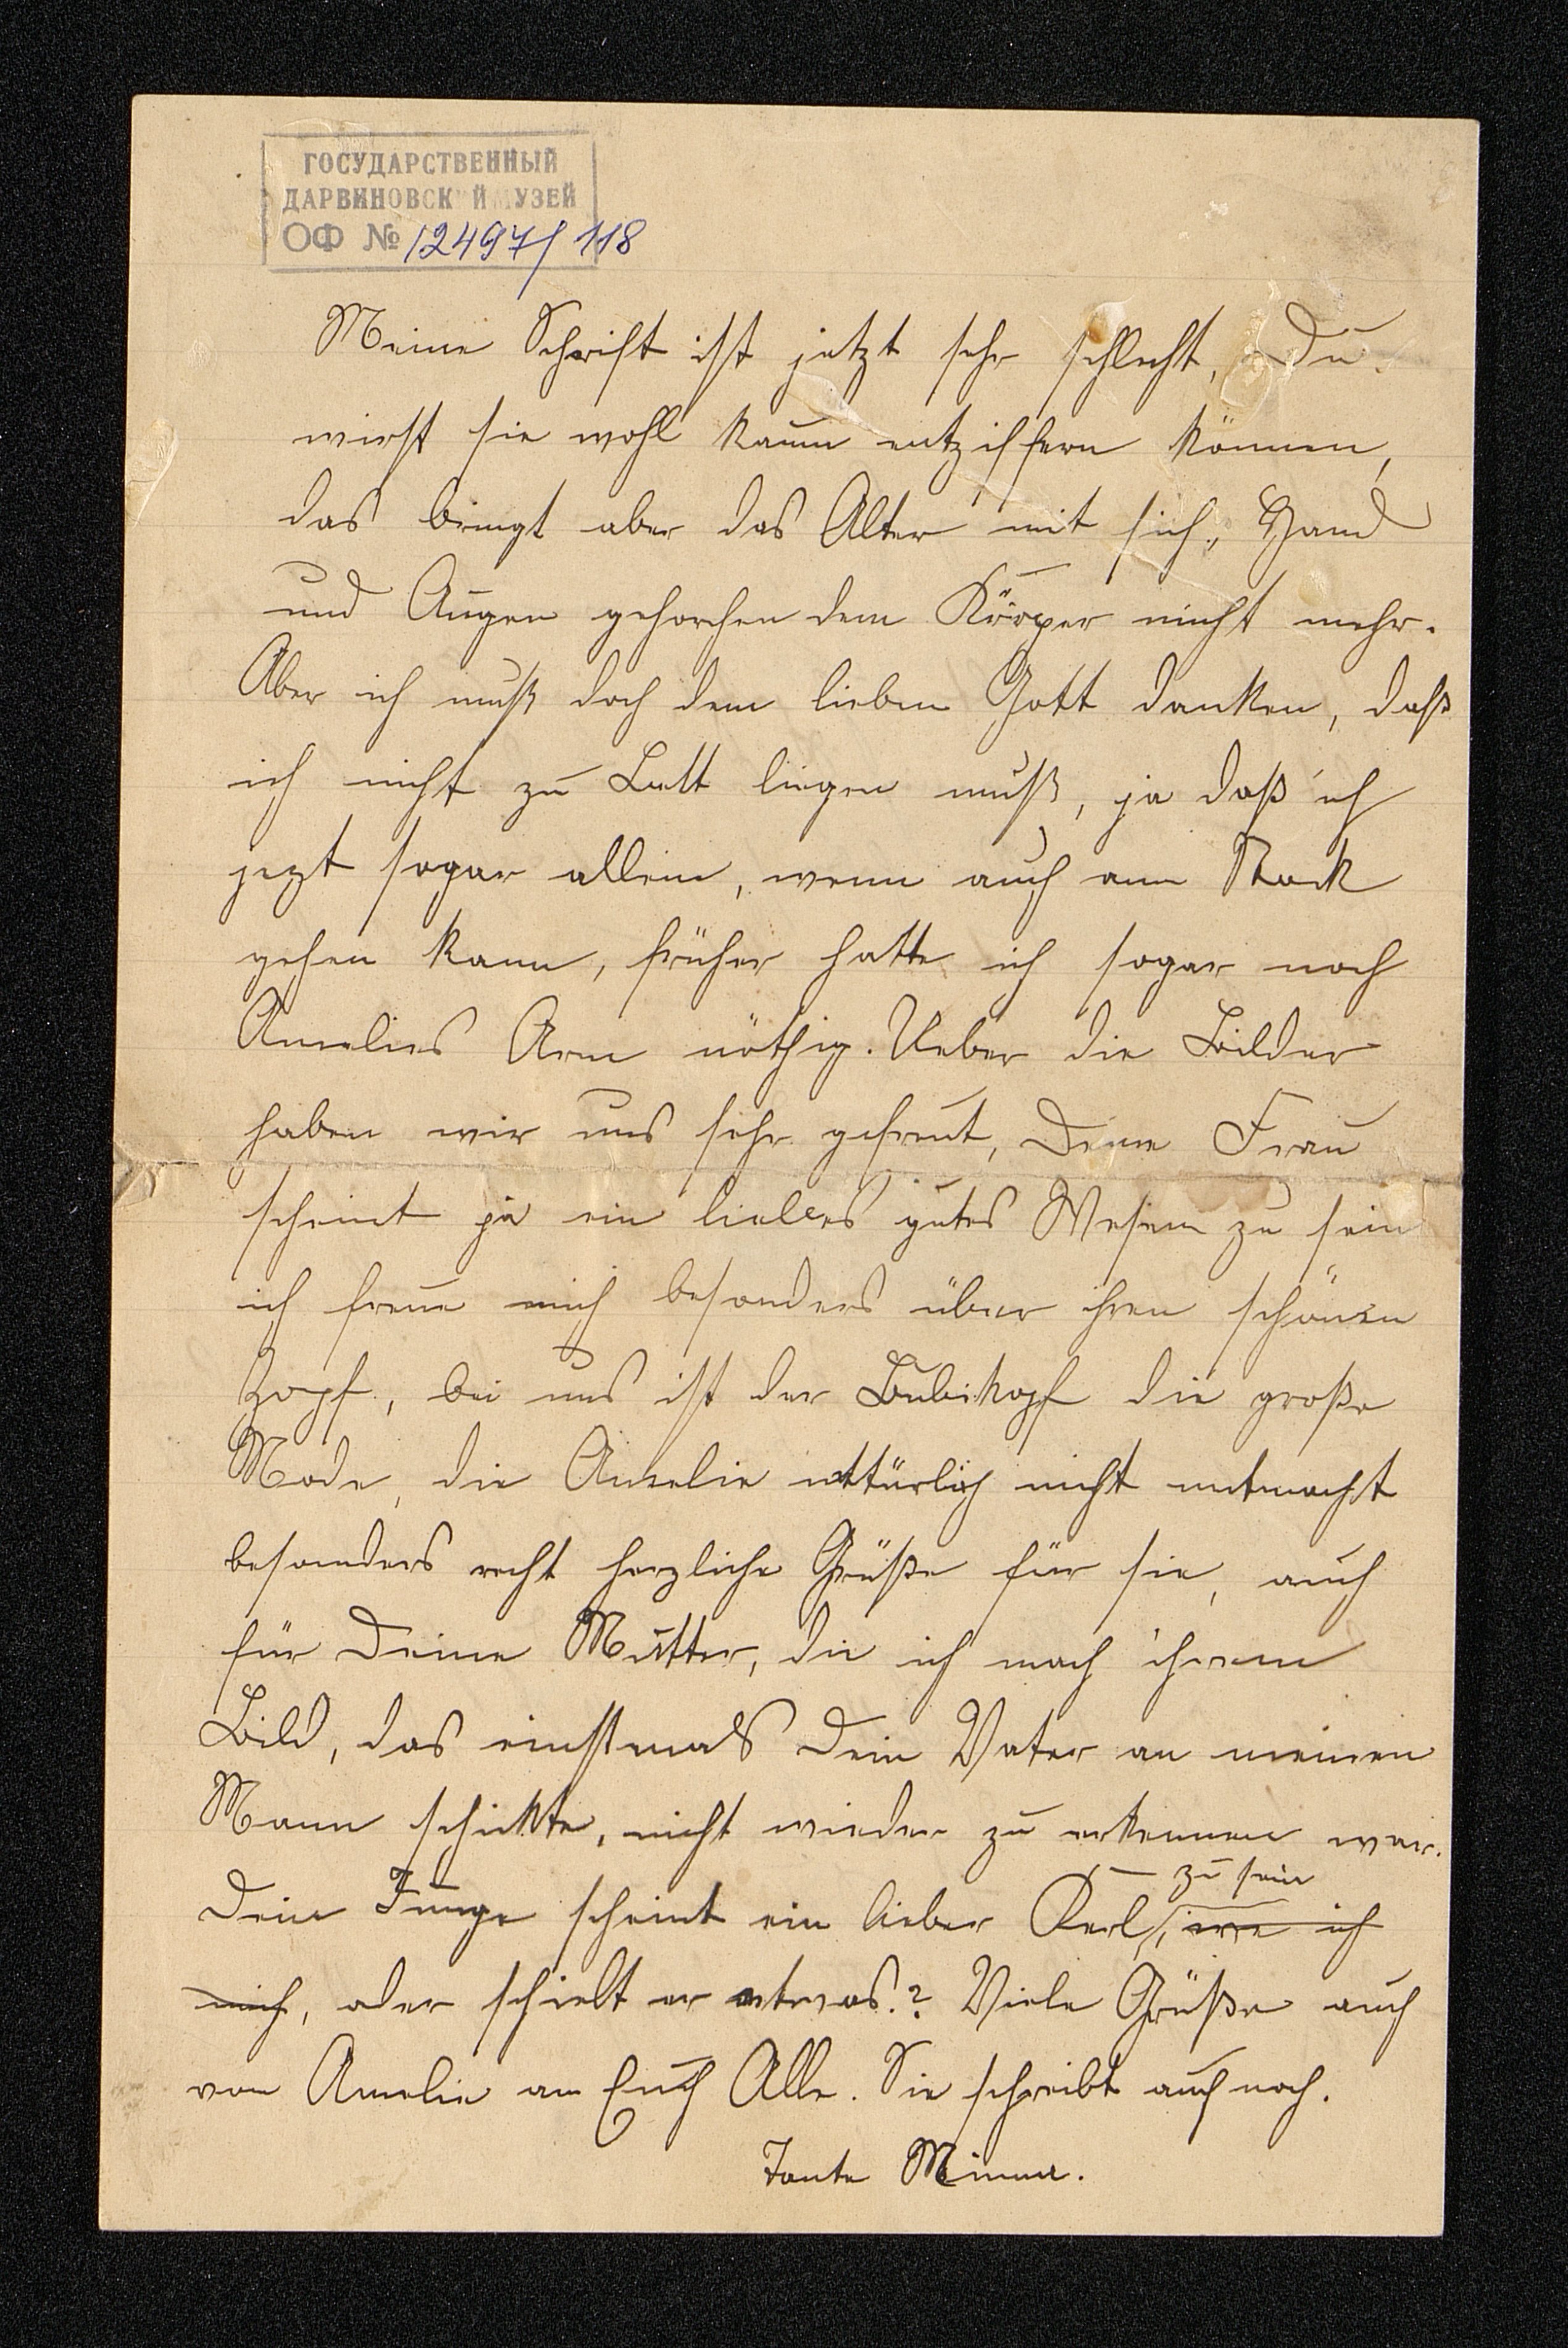 ГОСУДАРСТВЕННЫЙ
ДАРВИНОВСКИЙ МУЗЕЙ
ОФ № 12497/118
Meine Schrift ist jetzt sehr schlecht, Du
wirst sie wohl kaum entziffern können,
das bringt aber das Alter mit sich, Hand
und Augen gehorchen dem Körper nicht mehr.
Aber ich muß doch dem lieben Gott danken, daß
ich nicht zu Bett liegen muß, ja daß ich
jezt sogar allein, wenn auch am Stock
gehen kann, früher hatte ich sogar noch
Amelies Arm nöthig. Ueber die Bilder
haben wir uns sehr gefreut, Deine Frau
scheint ja ein liebes gutes Wesen zu sein
ich freue mich besonders über ihren schönen
Zopf, bei uns ist der Bubikopf die große
Mode, die Amelie nttürlich nicht mitmacht
besonders recht herzliche Grüße für sie, auch
für Deine Mutter, die ich nach ihrem
Bild, das einstmals Dein Vater an meinen
Mann schickte, nicht wieder zu erkennen war.
Dein Junge scheint ein lieber Kerl zu sein, irre ich
mich, oder schielt er etwas? Viele Grüße auch
von Amelie an Euch Alle. Sie schreibt auch noch.
Tante Minna.